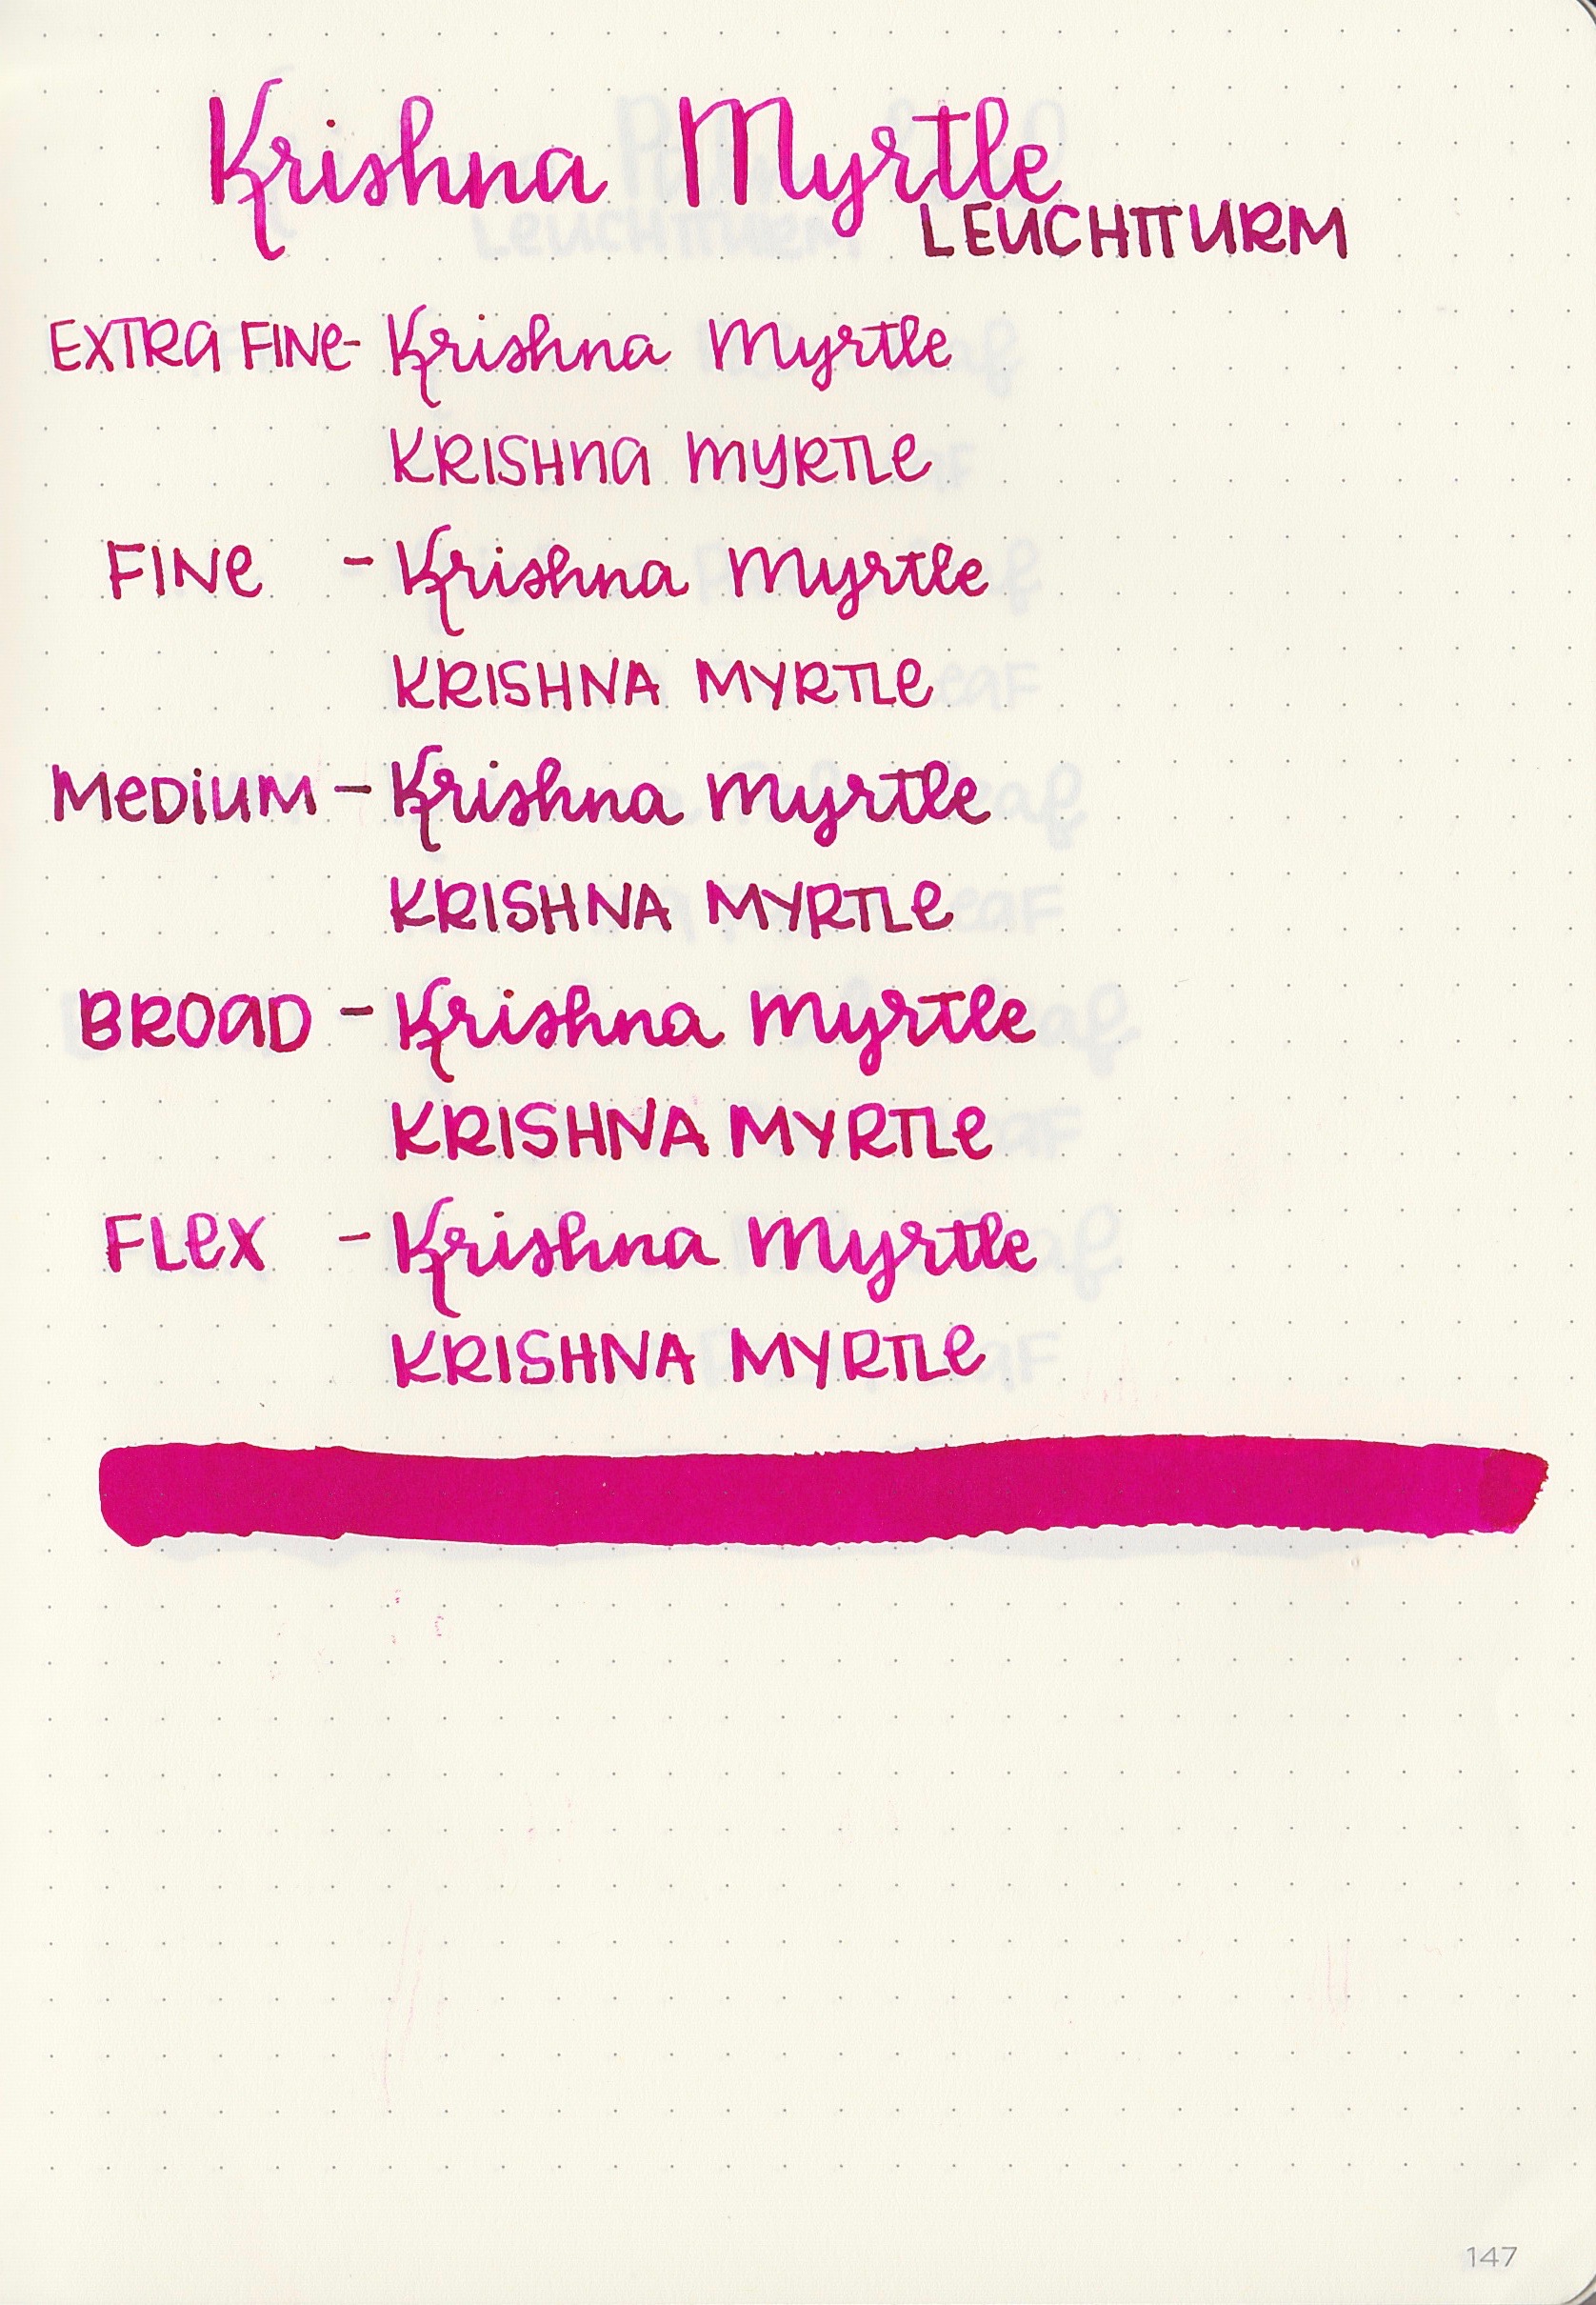 Krishna Myrtle
LEUCHTTURM
EXTRA FINE - Krishna Myrtle
KRISHNA MYRTLE
FINE - Krishna Myrtle
KRISHNA MYRTLE
MEDIUM - Krishna Myrtle
KRISHNA MYRTLE
BROAD - Krishna Myrtle
KRISHNA MYRTLE
FLEX - Krishna Myrtle
KRISHNA MYRTLE
147